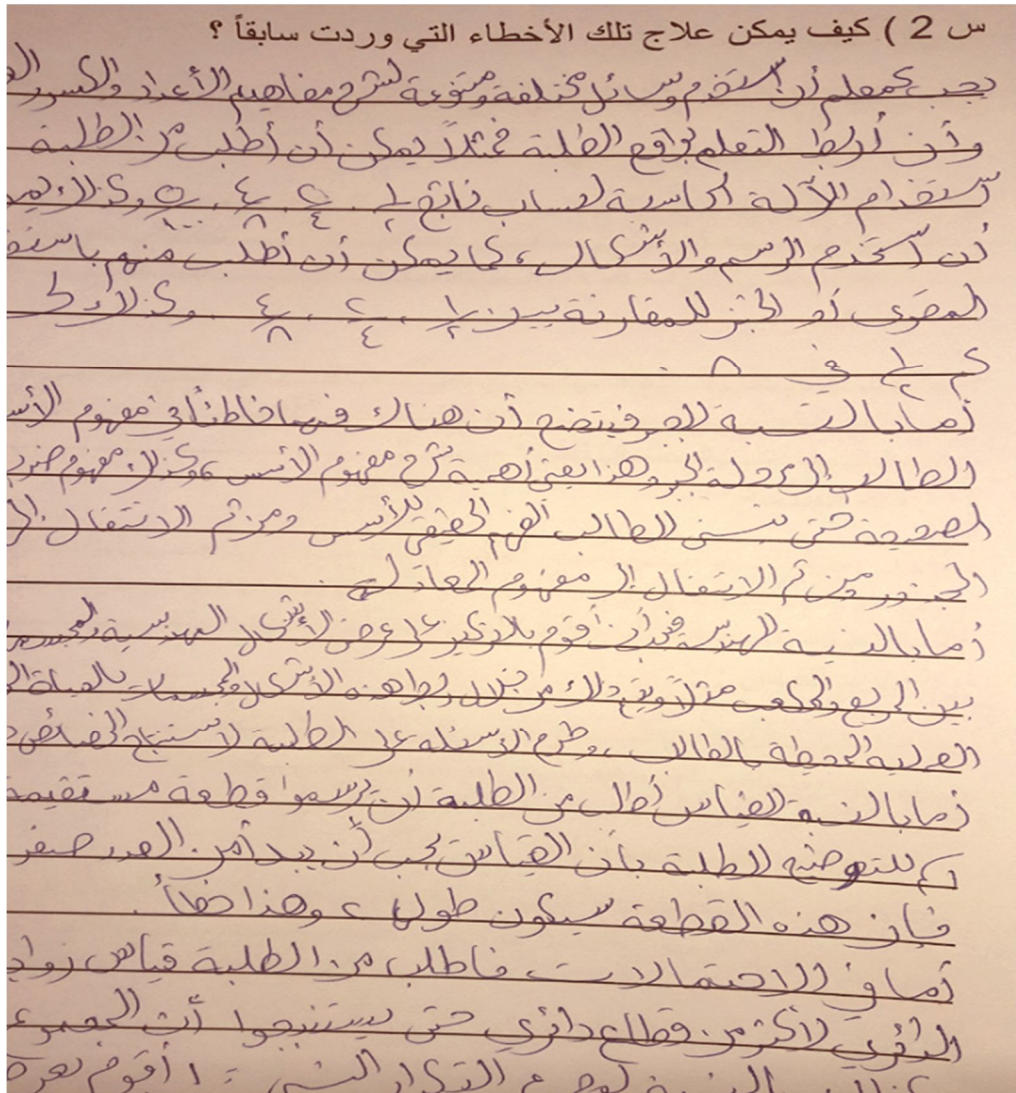 س 2 ) كيف يمكن علاج تلك الأخطاء التي وردت سابقاً ؟
يجب كمعلم أن أستخدم وسائل مختلفة ومتنوعة لشرح مفاهيم الأعداد والكسور
وأن أربط التعلم بواقع الطلبة فمثلاً يمكن أن أطلب من الطلبة
استخدام الآلة الحاسبة لحساب ناتج ١/٢ ، ٢/٤ ، ٤/٨ وكذلك
أن أستخدم الرسم والأشكال ، كما يمكن أن أطلب منهم
المقوى أو الخبز للمقارنة بين ١/٢ ، ٢/٤ ، ٤/٨ وكذلك
كم ١/٢ في ٨ .
أما بالنسبة للجبر فيتضح أن هناك فهماً خاطئاً في مفهوم
الطالب إلى مرحلة الجبر وهذا يعني أهمية شرح مفهوم الأسس ، وكذلك مفهوم
الصحيحة حتى يتسنى للطالب الفهم الحقيقي للأسس ومن ثم الانتقال إلى
الجذور ومن ثم الانتقال إلى مفهوم المعادلة .
أما بالنسبة للهندسة فيجب أن أقوم بالتركيز على عرض الأشكال الهندسية
بين المربع والمكعب مثلاً ويتم ذلك من خلال ربط هذه الأشكال والمجسمات بالحياة
العملية المحيطة بالطالب ، وطرح الأسئلة على الطلبة لاستنتاج الخصائص
أما بالنسبة للقياس أطلب من الطلبة أن يرسموا قطعة مستقيمة
كم للتوضيح للطلبة بأن القياس يجب أن يبدأ من العدد صفر
فإن هذه القطعة سيكون طولها ٢ وهذا خطأ .
أما في الاحتمالات فأطلب من الطلبة قياس زوايا
الدائري لأكثر من قطاع دائري حتى يستنتجوا أن المجموع
التكرار النسبي = ١ أقوم